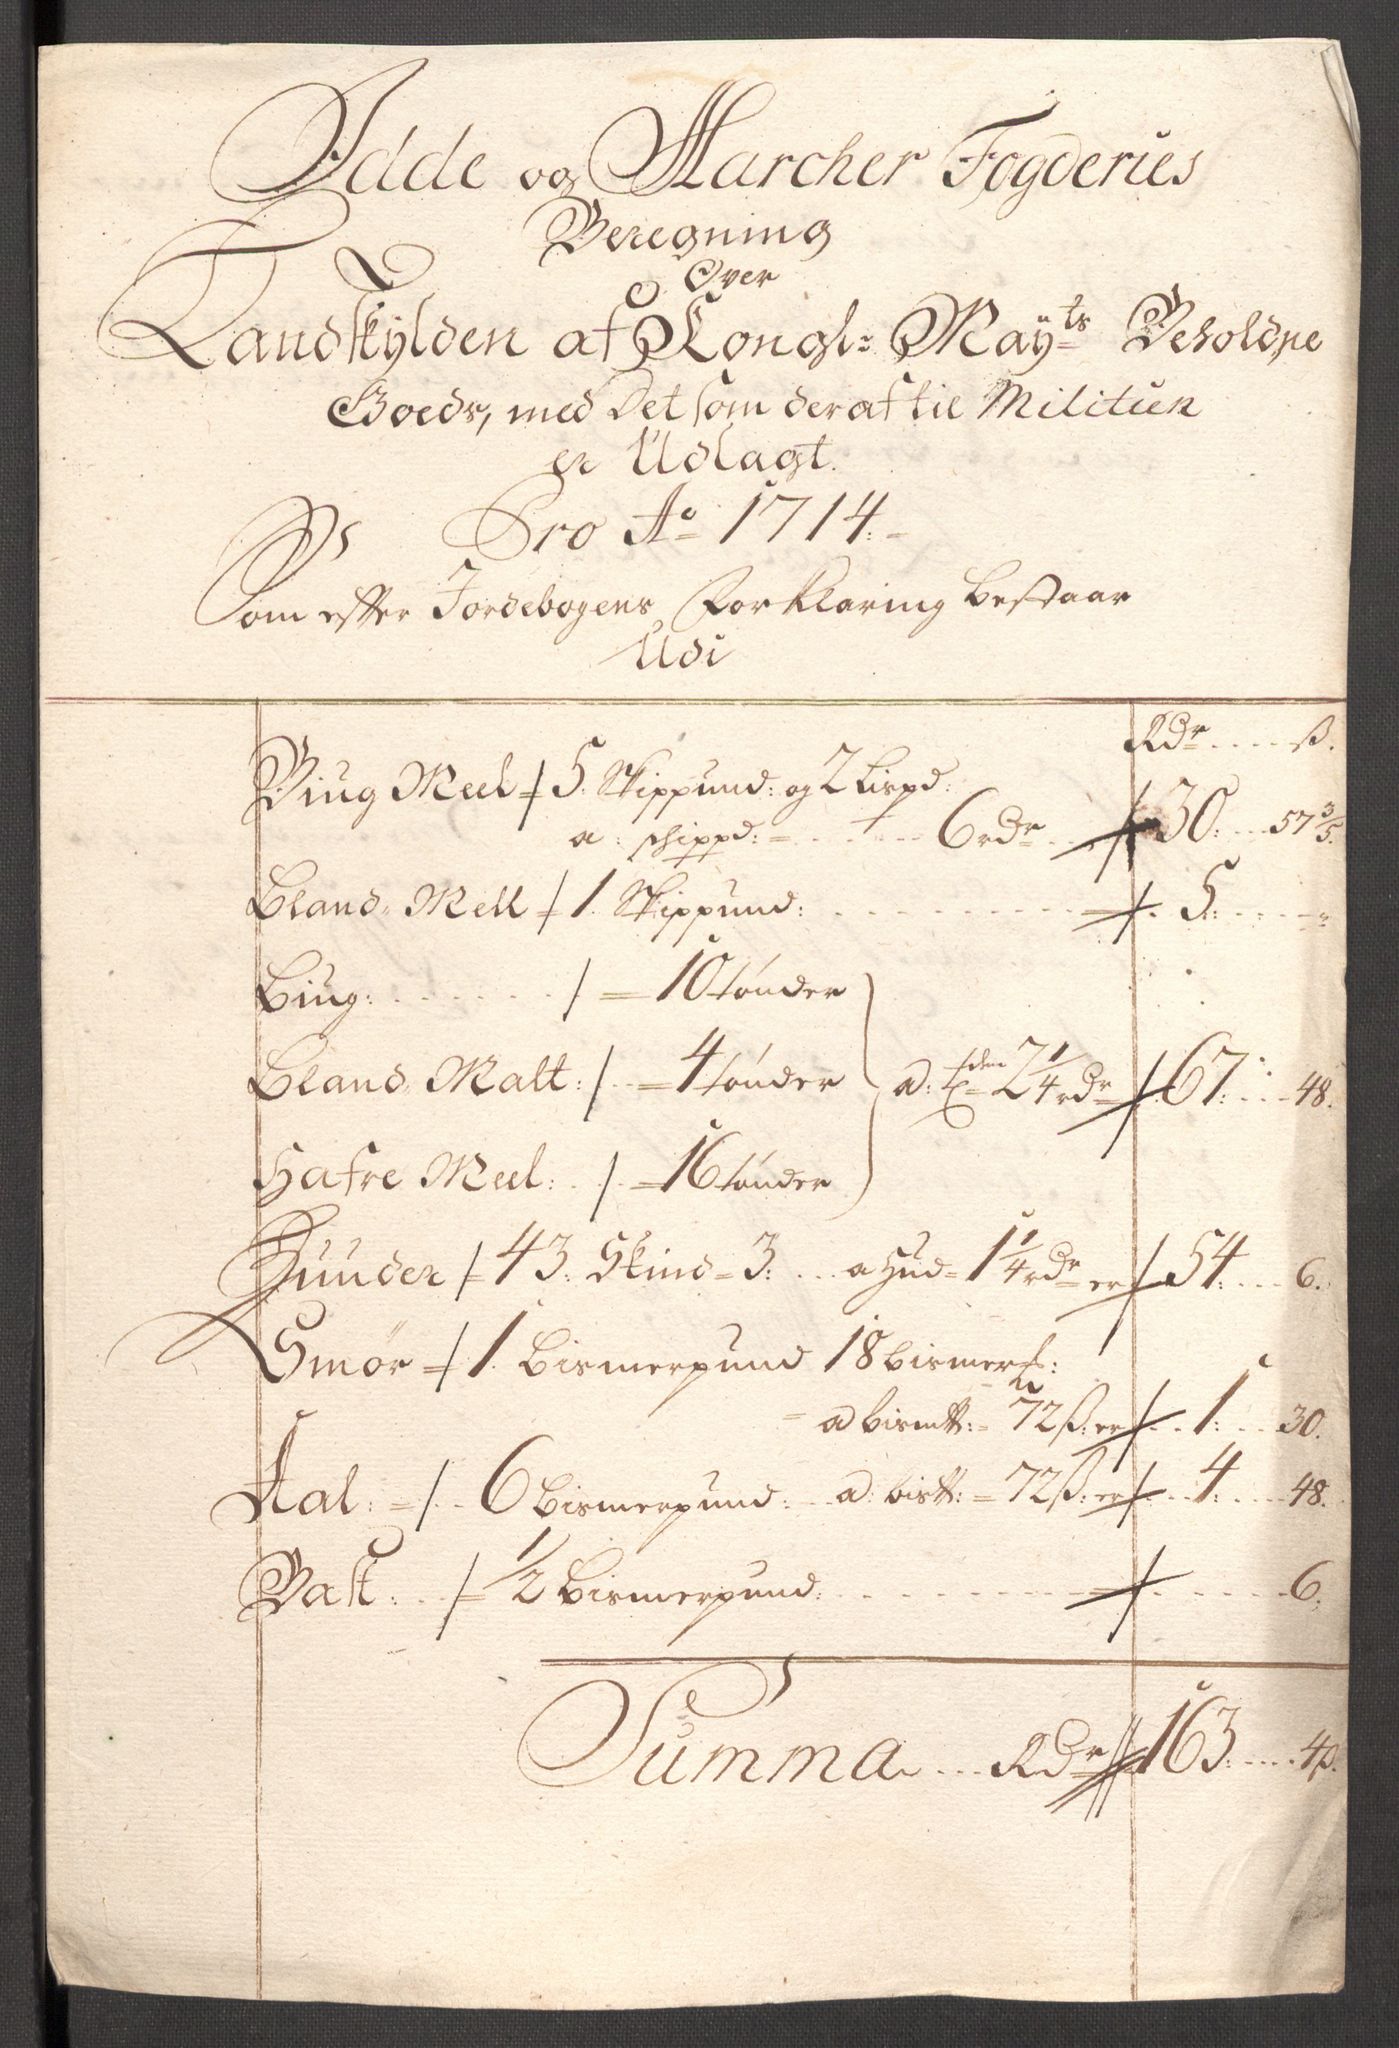 Idde og Marcher Fogderies
Beregning
Over
Landskylden af Kongl: Mayts Beholdne
Goeds, med Det som deraf til Militien
er Udlagt.
Pro Ao 1714.
Som efter Jordebogens Forklaring bestaar
Udi
Rdr .... ß.
Biug Meel 5. Skippund: og 2 Lispd:
a: schippd: 6 rdr 30: 57 3/5.
Bland Mell 1. Skippund: 5: "
Biug: 10 tønder
Bland Malt: 4 tønder a: tden 2 1/4 rdr 67: 48.
Hafre Meel: 16 tønder
Huuder 43: Skind 3: a Hud 1 1/4 rdr er 54: 6.
Smør 1. bismerpund 18 bismer
a bism: 72 ß: er 1: 30.
Aal: 6 bismerpund: a: bis: 72 ß: er 4: 48.
Bast: 1/2 bismerpund: 6:
Summa .... Rdr 163: 4 ß.